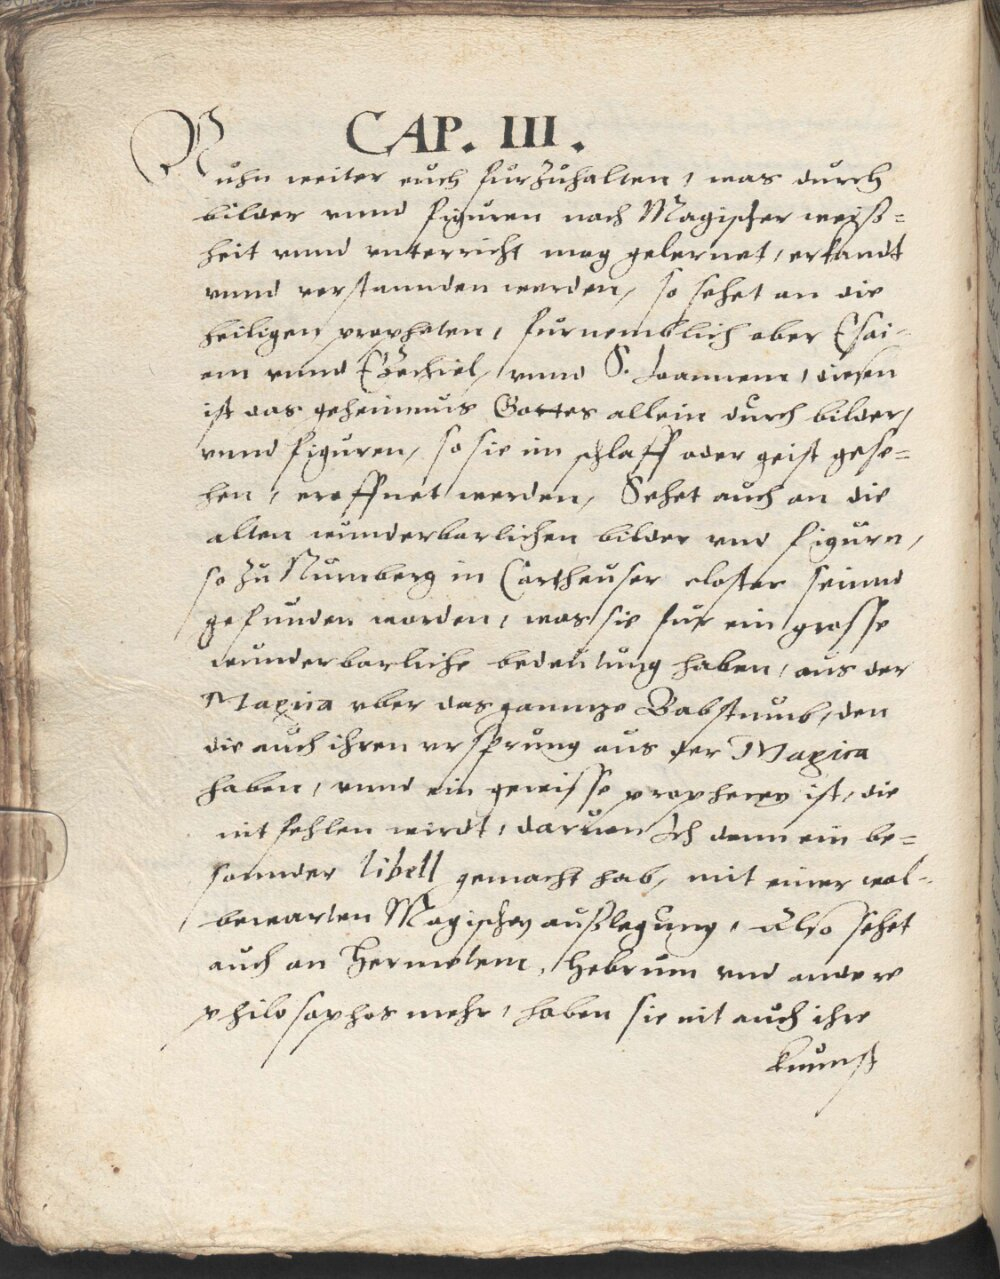 CAP. III.
Nuhn weiter euch furzuhalten, was durch
bilder vnnd figuren nach Magischer weiß=
heit vnnd vnterricht mag gelernet, erkandt
vnnd verstannden werden, so sehet an die
heiligen propheten, furnemblich aber Esai-
am vnnd Ezechiel, vnnd S. Joannem, diesen
ist das geheimnus Gottes allein durch bilder,
vnnd figuren, so sie im schlaff oder geist gese=
hen, eroffnet werden, Sehet auch an die
alten wunderbarlichen bilder vnd figurn,
so zu Nurmberg in Cartheuser closter seinnd
gefunden worden, was sie fur ein grosse
wunderbarliche bedeutung haben, aus der
Magica vber das gannze Babstumb, den
die auch ihren vrsprung aus der Magica
haben, vnnd ein gewisse prophecey ist, die
nit fehlen wirdt, daruon Ich dann ein be=
sonnder libell gemacht hab, mit einer wol-
bewarten Magischen außlegung, Also sehet
auch an Hermetem, Hebrum vnd andere
philosophos mehr, haben sie nit auch ihre
kunnst